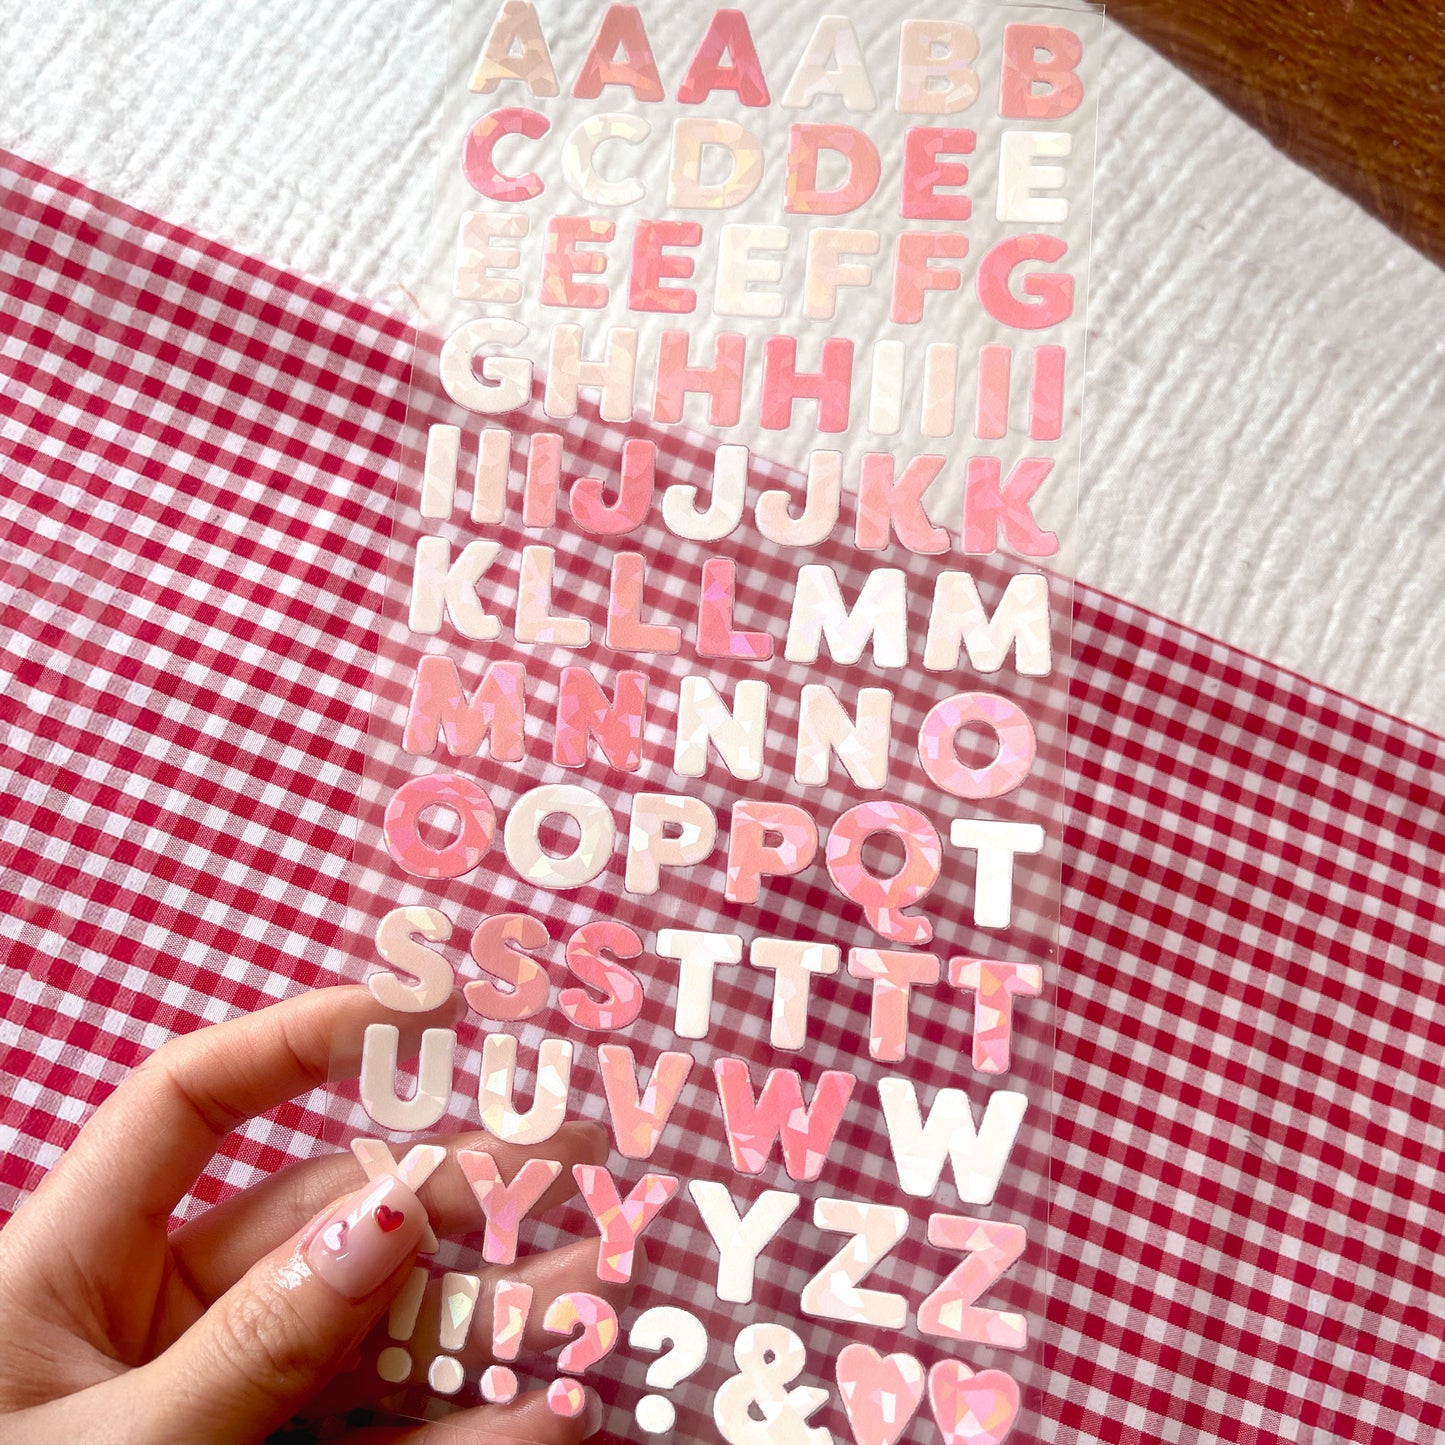 AAAABB
CCDDEE
EEEEFFG
GHHHIIII
IIIJJJKK
KLLLMM
MNNNO
OOPPQT
SSSTTTT
UUVWW
YYYYZZ
!!!??&♥♥